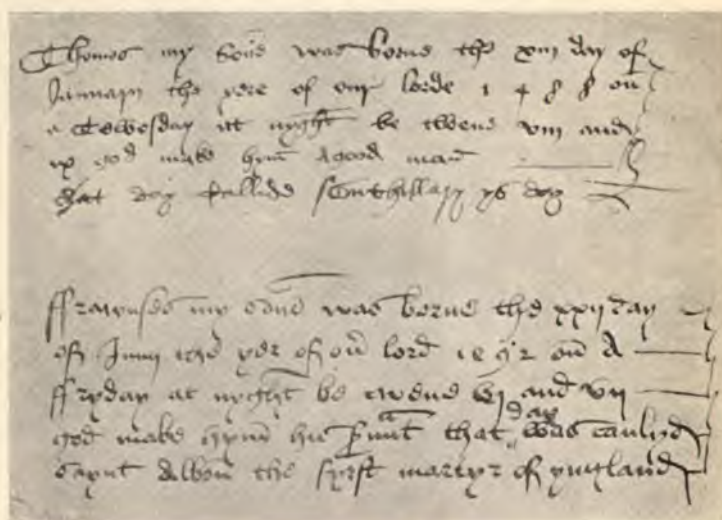 Thomas my Sone was borne the xiii day of
January the yere of our lorde 1 4 8 8 on
a Tewesday at nyght be twene viii and
ix god make him A good man
that day callide sent hillary ys day
ffraunses my sone was borne the xxij day
of Juny the yer of our lord 1492 on A
ffryday at nyght be twene vj and vij
god make hym his that day was caulyd
saynt Albon the fyrst martyr of yngland